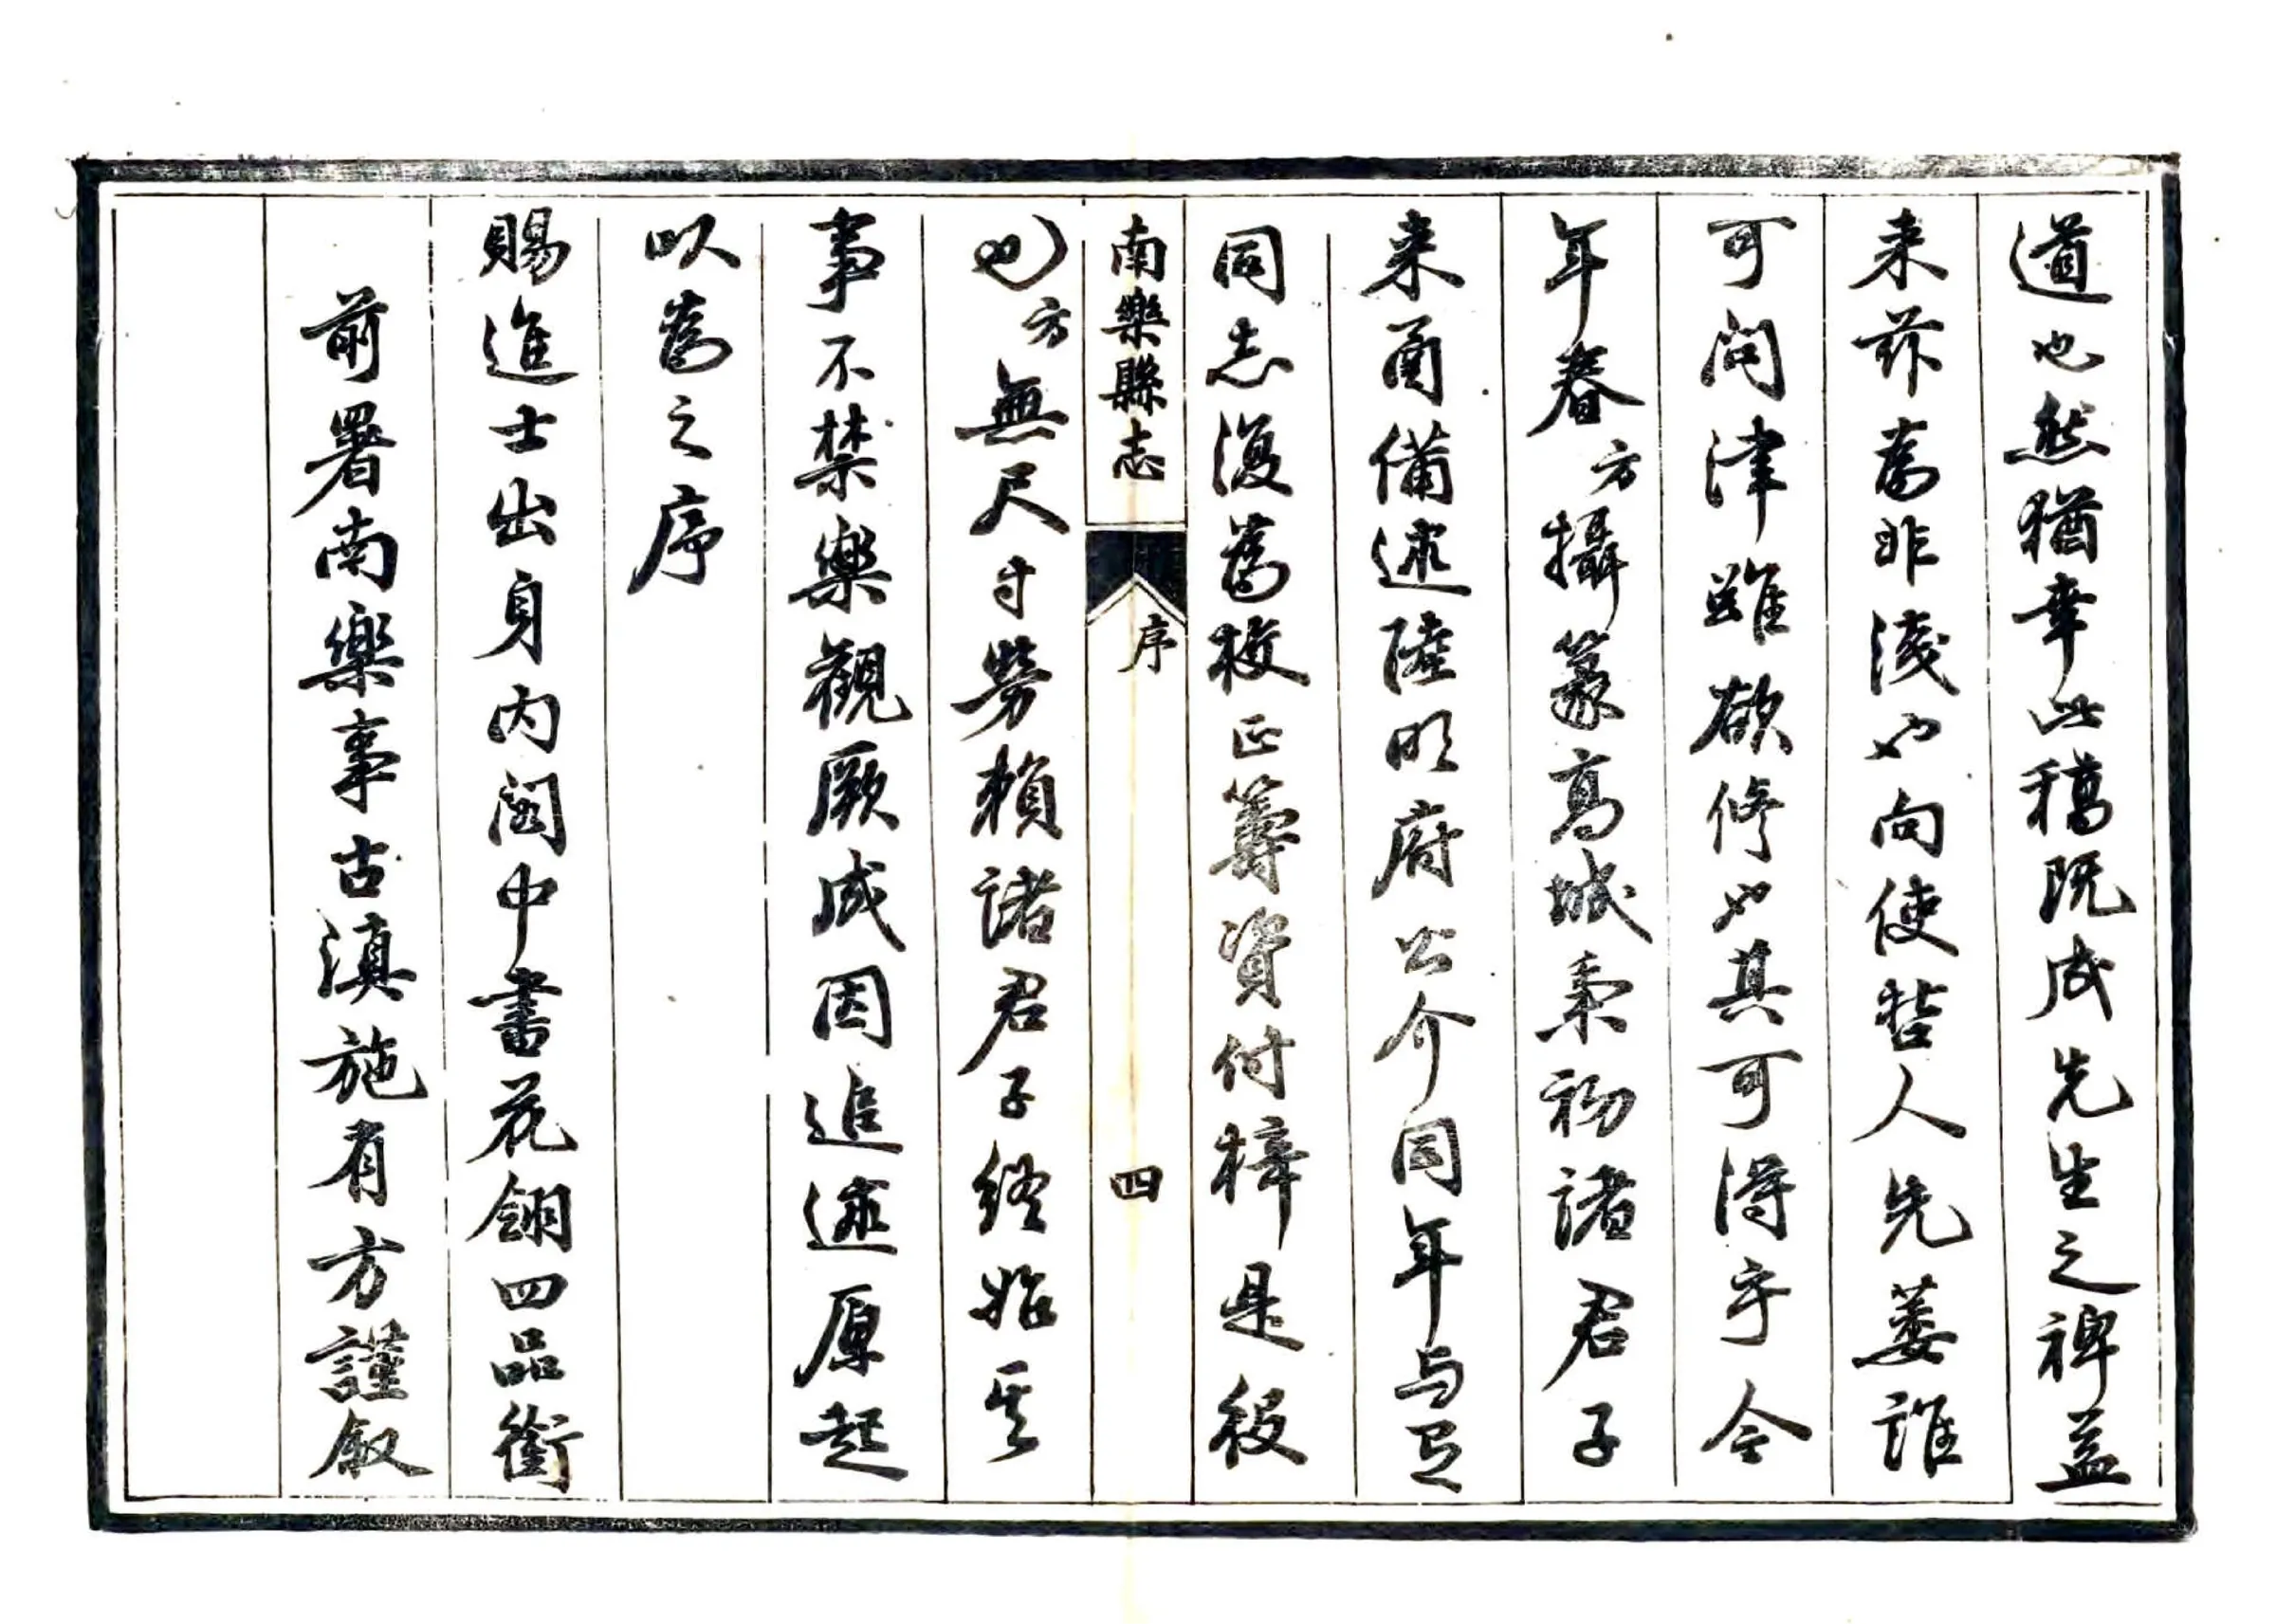 道也然猶幸此稿既成先生之裨益
来茲為非淺也向使哲人先萎誰
可問津雖欲修也其可得乎今
年春方攝篆高城秉初諸君子
来函備述陸明府公介同年与邑
同志復為校正籌資付梓是役
南樂縣志 序 四
也方無尺寸勞賴諸君子終始其
事不禁樂觀厥成因追述原起
以為之序
賜進士出身内閣中書花翎四品銜
前署南樂事古滇施有方謹叙